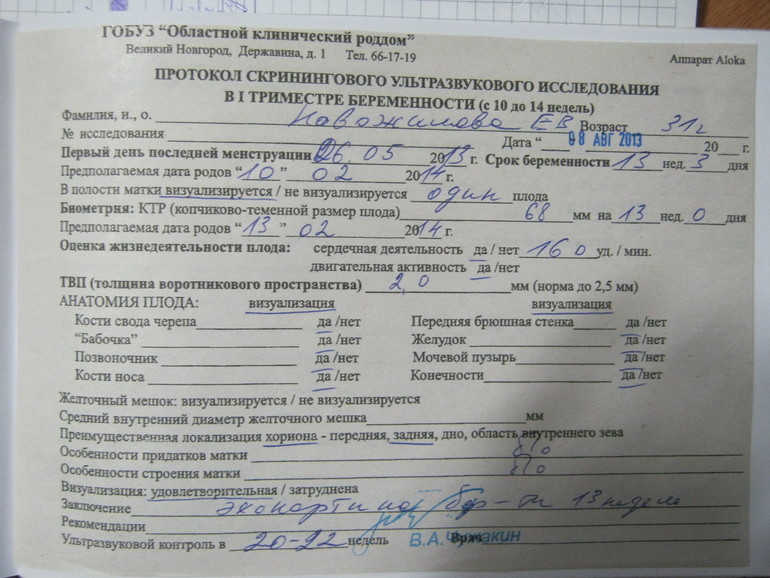 ГОБУЗ “Областной клинический роддом”
Великий Новгород, Державина, д. 1 Тел. 66-17-19
Аппарат Aloka
ПРОТОКОЛ СКРИНИНГОВОГО УЛЬТРАЗВУКОВОГО ИССЛЕДОВАНИЯ
В I ТРИМЕСТРЕ БЕРЕМЕННОСТИ (с 10 до 14 недель)
Фамилия, и., о. ЕВ Возраст 31г
№ исследования Дата “ 08 АВГ 2013 20 г.
Первый день последней менструации 26.05 2013г. Срок беременности 13 нед. 3 дня
Предполагаемая дата родов “10” 02 2014г.
В полости матки визуализируется / не визуализируется один плода
Биометрия: КТР (копчиково-теменной размер плода) 68 мм на 13 нед. 0 дня
Предполагаемая дата родов “13” 02 2014г.
Оценка жизнедеятельности плода: сердечная деятельность да / нет 160 уд. / мин.
двигательная активность да /нет
ТВП (толщина воротникового пространства) 2,0 мм (норма до 2,5 мм)
АНАТОМИЯ ПЛОДА: визуализация визуализация
Кости свода черепа да /нет Передняя брюшная стенка да /нет
“Бабочка” да /нет Желудок да /нет
Позвоночник да /нет Мочевой пузырь да /нет
Кости носа да /нет Конечности да /нет
Желточный мешок: визуализируется / не визуализируется
Средний внутренний диаметр желточного мешка мм
Преимущественная локализация хориона - передняя, задняя, дно, область внутреннего зева
Особенности придатков матки б/о
Особенности строения матки б/о
Визуализация: удовлетворительная / затруднена
Заключение эхокартина бер-ти 13 недель
Рекомендации
Ультразвуковой контроль в 20-22 недель Врач